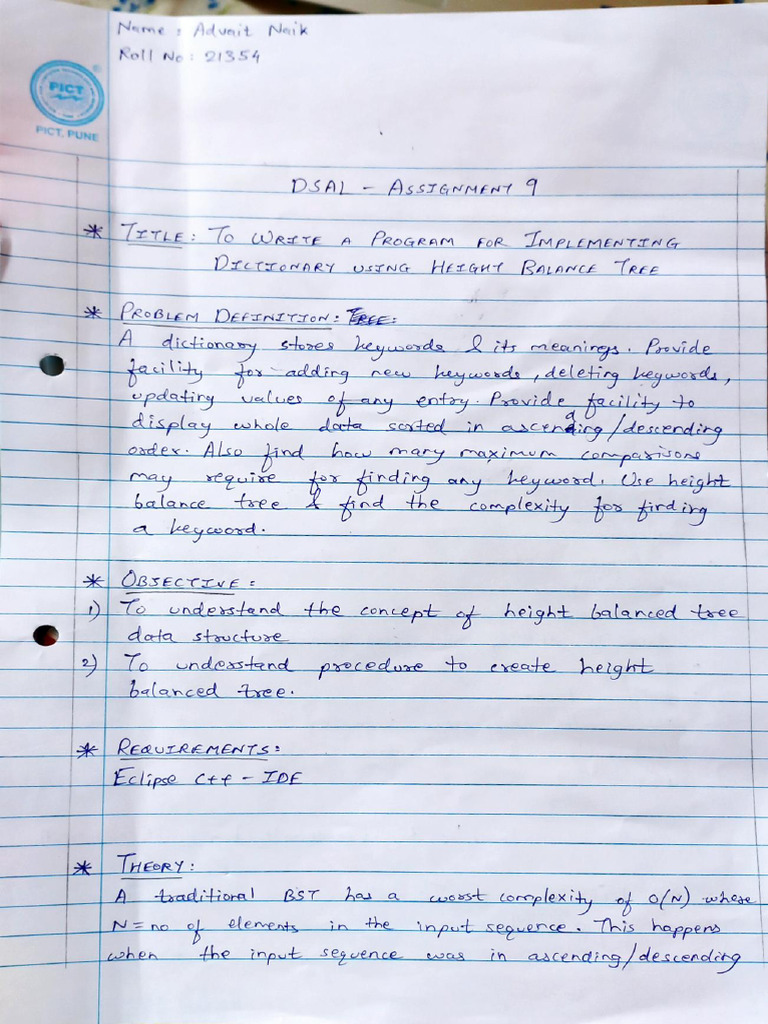 Name : Advait Naik
Roll No : 21354
PICT
PICT, PUNE
DSAL - ASSIGNMENT 9
* TITLE : TO WRITE A PROGRAM FOR IMPLEMENTING
DICTIONARY USING HEIGHT BALANCE TREE
* PROBLEM DEFINITION : TREE :
A dictionary stores keywords & its meanings. Provide
facility for adding new keywords, deleting keywords,
updating values of any entry. Provide facility to
display whole data sorted in ascending/descending
order. Also find how many maximum comparisons
may require for finding any keyword. Use height
balance tree & find the complexity for finding
a keyword.
* OBJECTIVE :
1) To understand the concept of height balanced tree
data structure
2) To understand procedure to create height
balanced tree.
* REQUIREMENTS :
Eclipse C++ - IDE
* THEORY :
A traditional BST has a worst complexity of O(N) where
N = no of elements in the input sequence. This happens
when the input sequence was in ascending/descending